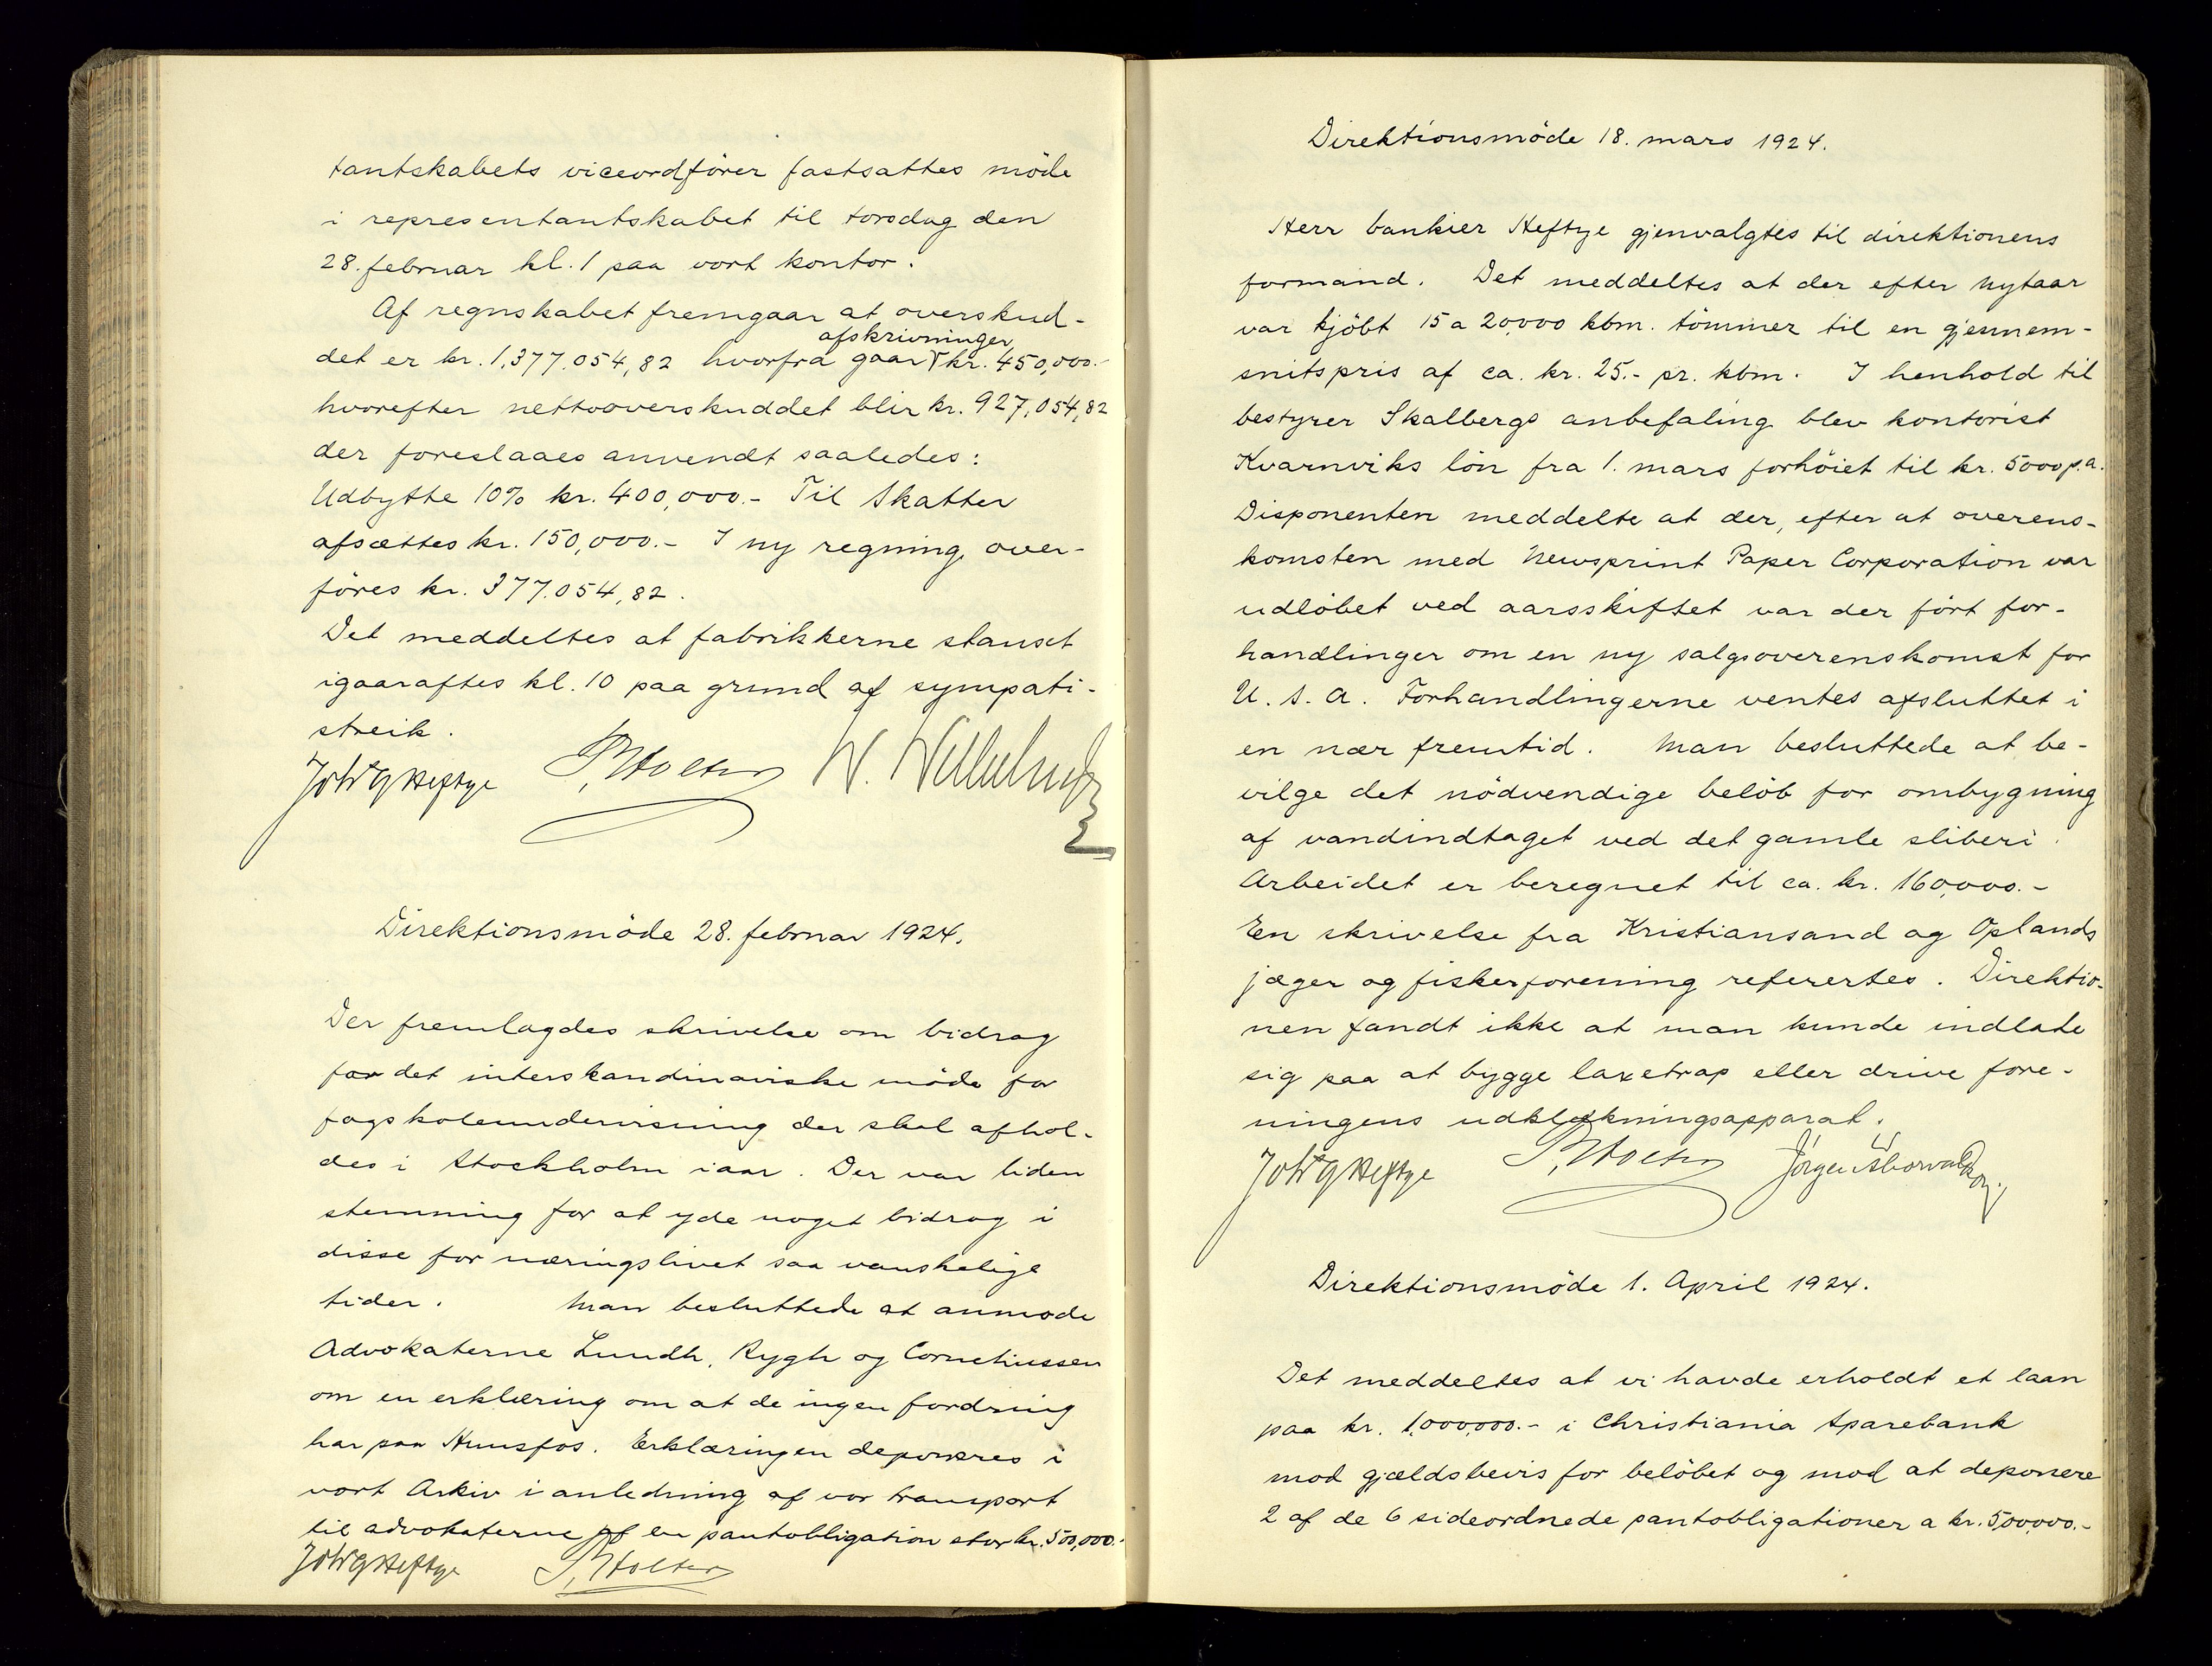 tantskabets viceordfører fastsattes möde
i representantskabet til torsdag den
28. februar kl. 1 paa vort kontor.
Af regnskabet fremgaar at overskud-
afskrivninger
det er kr. 1,377.054,82 hvorfra gaar kr. 450,000.-
hvorefter nettooverskuddet blir kr. 927,054,82
der foreslaaes anvendt saaledes:
Udbytte 10% kr. 400,000.- Til Skatter
afsættes kr. 150,000.- I ny regning over-
föres kr. 377.054,82.
Det meddeltes at fabrikkerne stanset
igaaraftes kl. 10 paa grund af sympati-
streik.
Joh HG Heftye P. Holter
Direktionsmöde 28. februar 1924.
Der fremlagdes skrivelse om bidrag
for det interskandinaviske möde for
fagskoleundervisning der skal afhol-
des i Stockholm iaar. Der var liden
stemning for at yde noget bidrag i
disse for næringslivet saa vanskelige
tider. Man besluttede at anmode
Advokaterne Lundh, Rygh og Corneliussen
om en erklæring om at de ingen fordring
har paa Hunsfos. Erklæringen deponeres i
vort Arkiv i anledning af vor transport
til advokaterne af en pantobligation stor kr. 500,000.-
Joh HG Heftye P. Holter
Direktionsmöde 18. mars 1924.
Herr bankier Heftye gjenvalgtes til direktionens
formand. Det meddeltes at der efter nytaar
var kjöbt 15 a 20,000 kbm. tömmer til en gjennem-
snitspris af ca. kr. 25.- pr. kbm. I henhold til
bestyrer Skalbergs anbefaling blev kontorist
Kvarnviks lön fra 1. mars forhöiet til kr. 5000 p.a.
Disponenten meddelte at der, efter at overens-
komsten med Newsprint Paper Corporation var
udlöbet ved aarsskiftet var der fört for-
handlinger om en ny salgsoverenskomst for
U.S.A. Forhandlingerne ventes afsluttet i
en nær fremtid. Man besluttede at be-
vilge det nödvendige belöb for ombygning
af vandindtaget ved det gamle sliberi.
Arbeidet er beregnet til ca. kr. 160,000.-
En skrivelse fra Kristiansand og Oplands
jæger og fiskerforening refererters. Direktio-
nen fandt ikke at man kunde indlate
sig paa at bygge laxetrap eller drive fore-
ningens udklækningsapparat.
Joh HG Heftye P. Holter
Direktionsmöde 1. April 1924.
Det meddeltes at vi havde erholdt et laan
paa kr. 1,000,000.- i Christiania Sparebank
mod gjældsbevis for belöbet og mod at deponere
2 af de 6 sideordnede pantobligationer a kr. 500,000.-